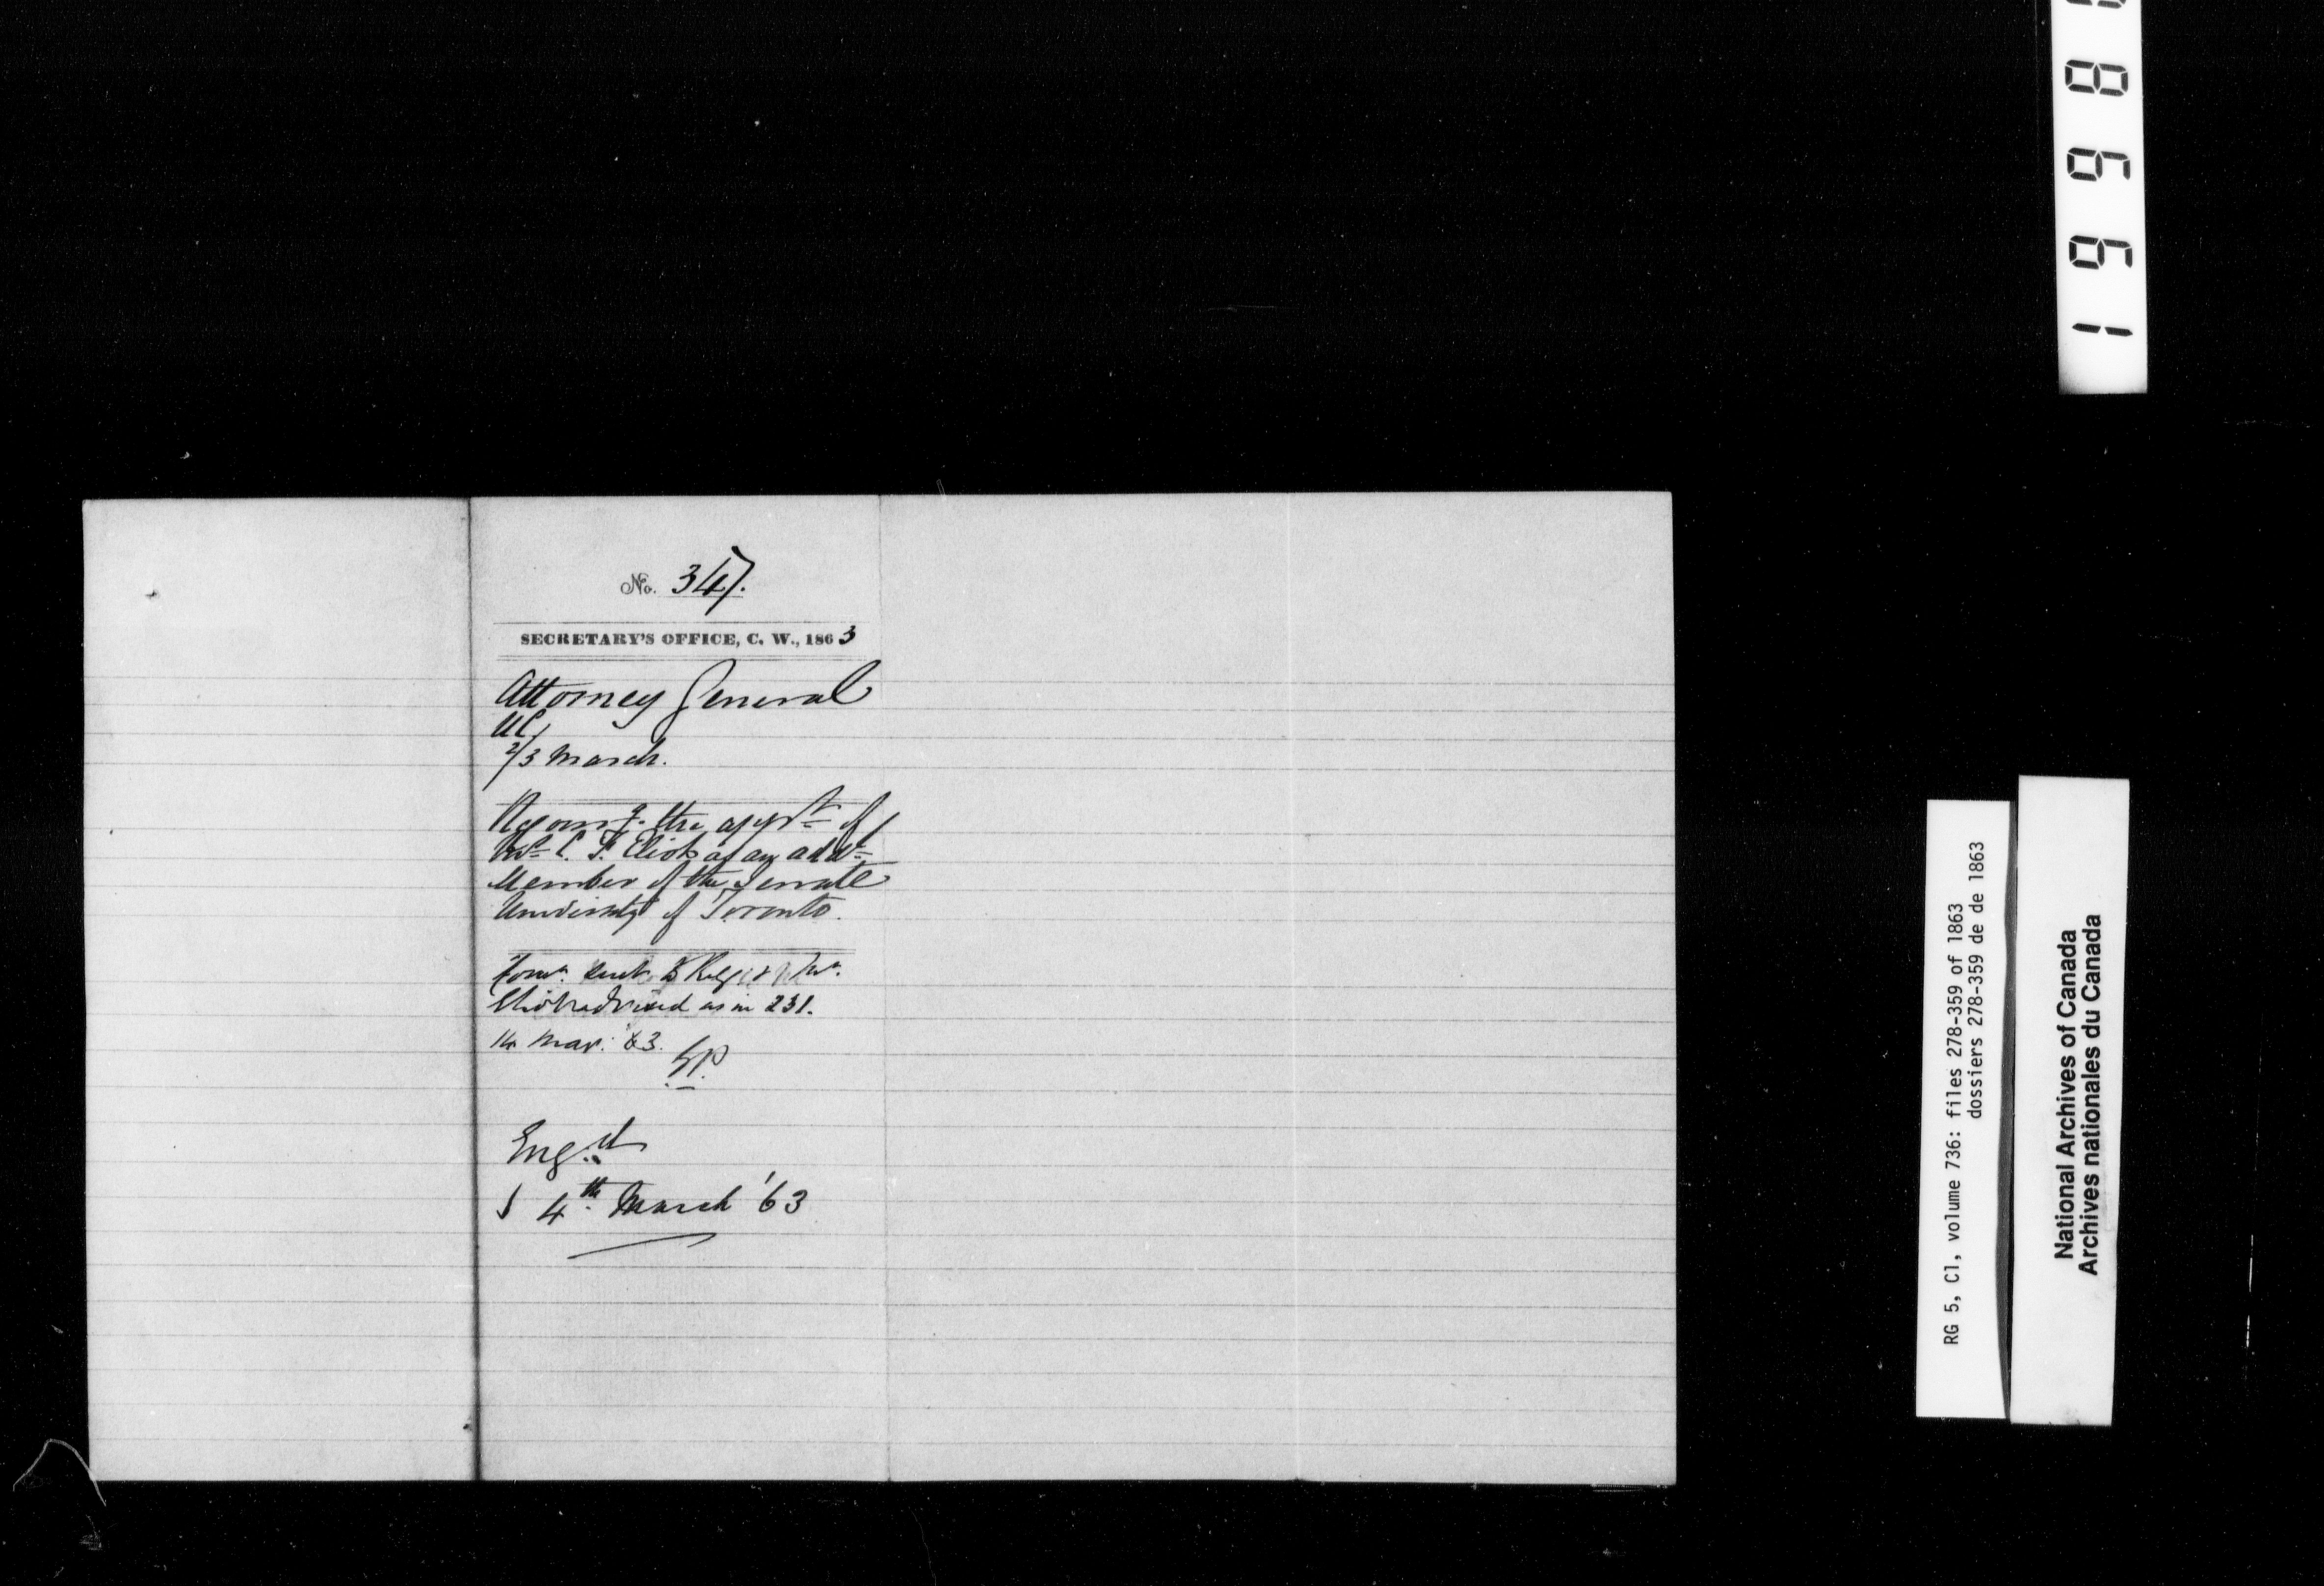 No. 347.
SECRETARY'S OFFICE, C. W., 1863
Attorney General
UC,
2/3 March.
the appt of
Mr C. Eliot as an addl
Member of the Senate
University of Toronto.
sent to & Mr.
Eliot advised as in 231.
14 Mar: 63.
Engd
4th March '63
RG 5, C1, volume 736: files 278-359 of 1863
dossiers 278-359 de de 1863
National Archives of Canada
Archives nationales du Canada